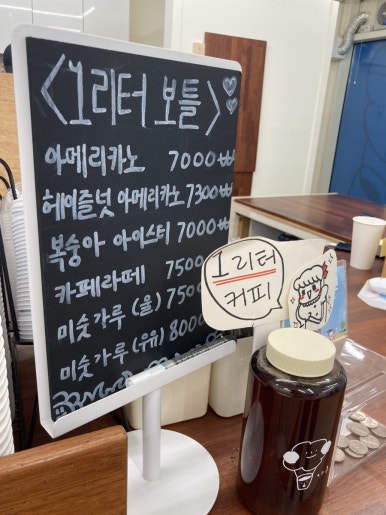 <1리터 보틀>
아메리카노 7000₩
헤이즐넛 아메리카노 7300₩
복숭아 아이스티 7000₩
카페라떼 7500
미숫가루 (물) 7500
미숫가루 (우유) 8000
1리터
커피